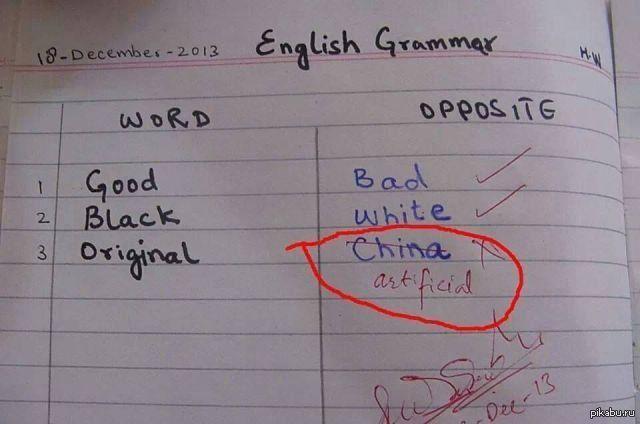 18-December-2013 English Grammar H.W
WORD OPPOSITE
1 Good Bad
2 Black White
3 Original China
artificial
-Dec-13
pikabu.ru